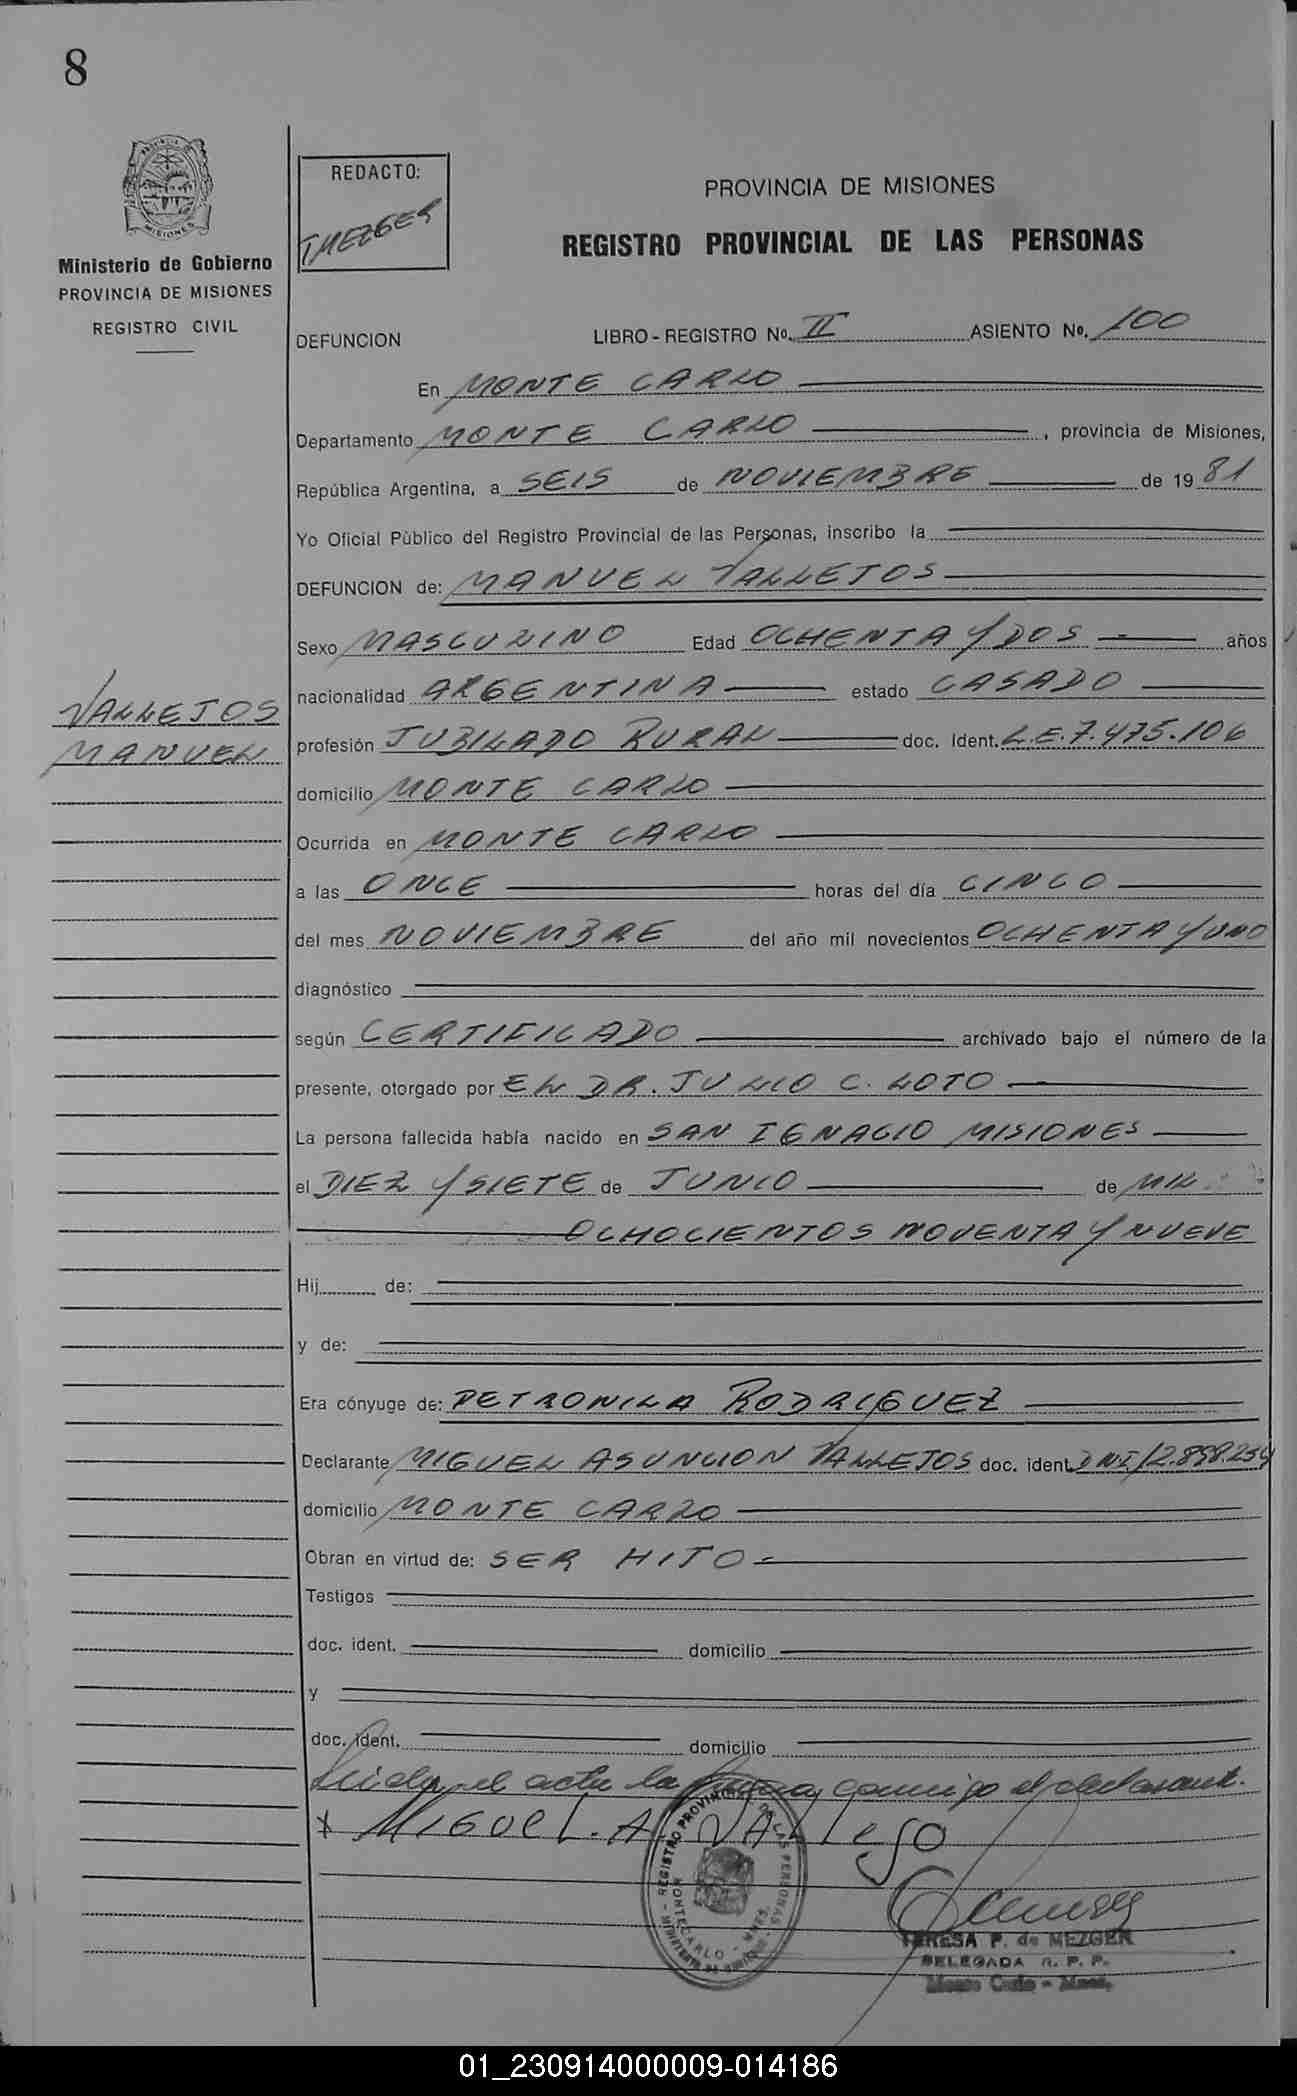 8
Ministerio de Gobierno
PROVINCIA DE MISIONES
REGISTRO CIVIL
REDACTO:
TMEZGER
PROVINCIA DE MISIONES
REGISTRO PROVINCIAL DE LAS PERSONAS
DEFUNCION LIBRO - REGISTRO No. II ASIENTO No. 100
En MONTE CARLO
Departamento MONTE CARLO, provincia de Misiones,
República Argentina, a SEIS de NOVIEMBRE de 19 81
Yo Oficial Público del Registro Provincial de las Personas, inscribo la
DEFUNCION de: MANUEL VALLEJOS
Sexo MASCULINO Edad OCHENTA Y DOS años
nacionalidad ARGENTINA estado CASADO
VALLEJOS
MANUEL
profesión JUBILADO RURAL doc. Ident. L.E. 7.475.106
domicilio MONTE CARLO
Ocurrida en MONTE CARLO
a las ONCE horas del día CINCO
del mes NOVIEMBRE del año mil novecientos OCHENTA Y UNO
diagnóstico
según CERTIFICADO archivado bajo el número de la
presente, otorgado por EL DR. JULIO C. LOTO
La persona fallecida había nacido en SAN IGNACIO MISIONES
el DIEZ Y SIETE de JUNIO de MIL
OCHOCIENTOS NOVENTA Y NUEVE
Hij de:
y de:
Era cónyuge de: PETRONILA RODRIGUEZ
Declarante MIGUEL ASUNCION VALLEJOS doc. ident. DNI 12.898.254
domicilio MONTE CARLO
Obran en virtud de: SER HIJO
Testigos
doc. ident. domicilio
y
doc. ident. domicilio
Leida el acta la firma conmigo el declarante.
x MIGUEL. A. VALLEJO
REGISTRO PROVINCIAL DE LAS PERSONAS
MONTECARLO - MNES.
TERESA P. de MEZGER
DELEGADA R. P. P.
Monte Carlo - Mnes.
01_230914000009-014186